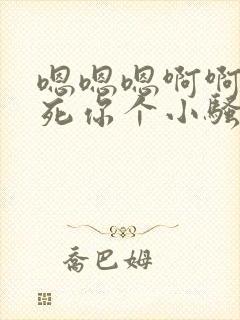 嗯嗯嗯啊啊
死你个小骚
乔巴姆